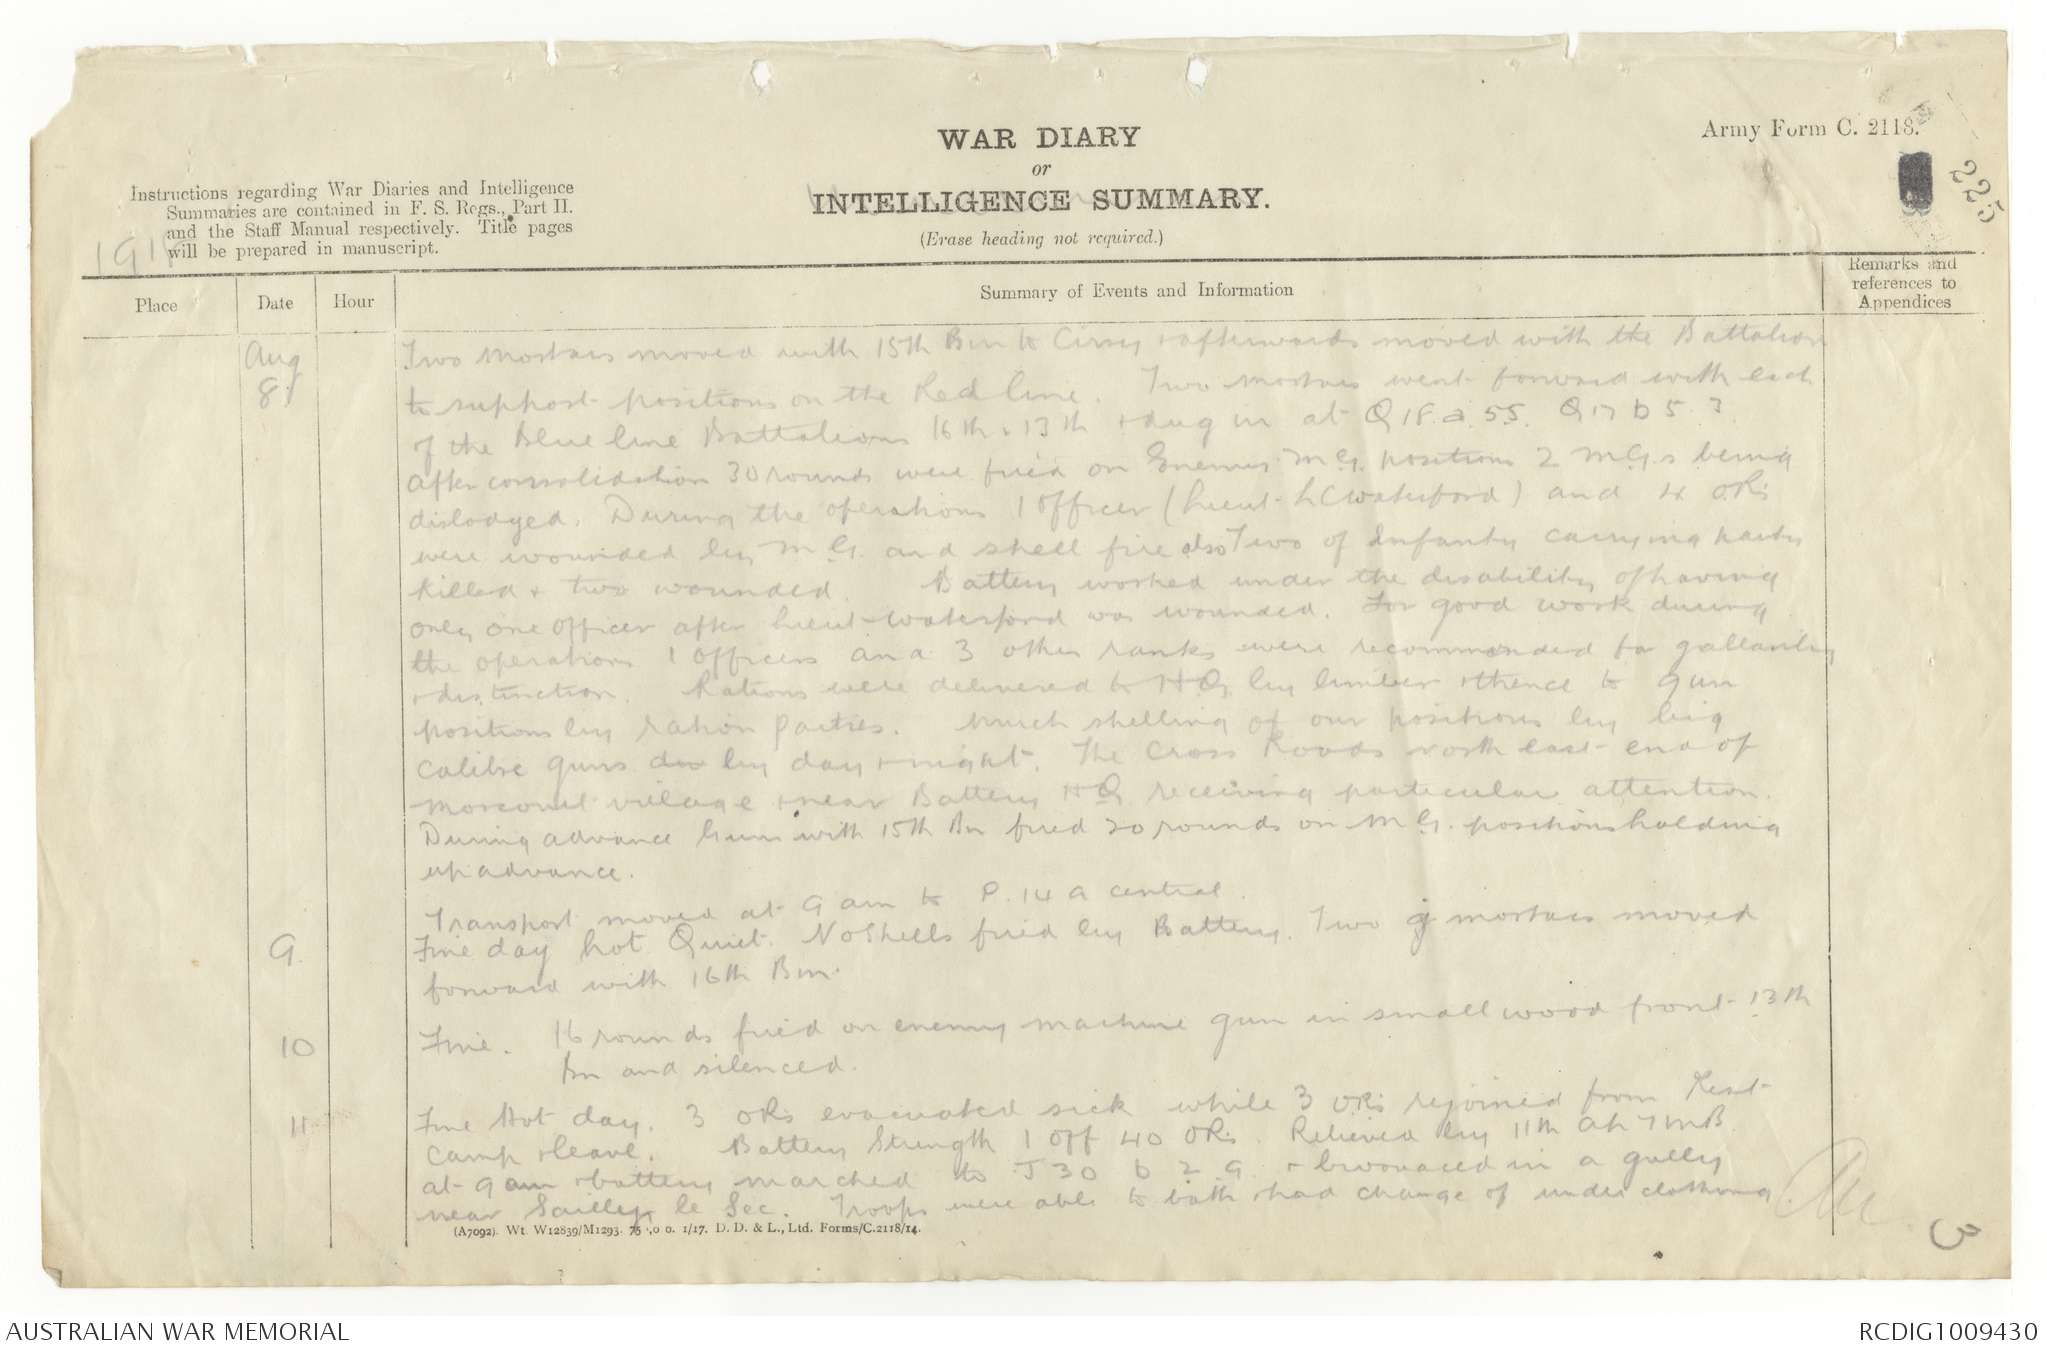 WAR DIARY
or
INTELLIGENCE SUMMARY.
(Erase heading not required.)
Army Form C. 2118.
225
Instructions regarding War Diaries and Intelligence
Summaries are contained in F. S. Regs., Part II.
and the Staff Manual respectively. Title pages
will be prepared in manuscript.
1918
Place
Date
Hour
Summary of Events and Information
Remarks and
references to
Appendices
Aug
8
Two mortars moved with 15th Bn to Cirsy & afterwards moved with the Battalion
to support positions on the Red line. Two mortars went forward with each
of the Blue line Battalions 16th & 13th & dug in at Q 18.a.55. Q 17 b 5.3
After consolidation 30 rounds were fired on Enemy M.G. positions 2 M.G.s being
dislodged. During the operations 1 Officer (Lieut- L C Waterford) and 4 ORs
were wounded by M.G. and shell fire also Two of Infantry carrying party
killed & two wounded. Battery worked under the disability of having
only one officer after Lieut- Waterford was wounded. For good work during
the operations 1 Officers and 3 other ranks were recommended for gallantry
& distinction. Rations were delivered to HQ by limber & thence to gun
positions by ration parties. Much shelling of our positions by big
calibre guns by day & night. The Cross Roads north east end of
Morcourt village & near Battery HQ receiving particular attention.
During advance Guns with 15th Bn fired 20 rounds on M.G. positions holding
up advance.
Transport moved at 9 am to P.14 a central.
9
Fine day hot Quiet. No Shells fired by Battery. Two mortars moved
forward with 16th Bn.
10
Fine. 16 rounds fired on enemy machine gun in small wood front 13th
Bn and silenced.
11
Fine Hot day. 3 ORs evacuated sick while 3 ORs rejoined from Rest
Camp & leave. Battery Strength 1 Off 40 ORs. Relieved by 11th A L T M B.
at 9 am & battery marched to J 30 b 2.9 & bivouaced in a gully
near Sailly le Sec. Troops were able to bath & had change of under clothing.
3
(A7092). Wt. W12839/M1293. 75 ,0 0. 1/17. D. D. & L., Ltd. Forms/C.2118/14.
AUSTRALIAN WAR MEMORIAL
RCDIG1009430